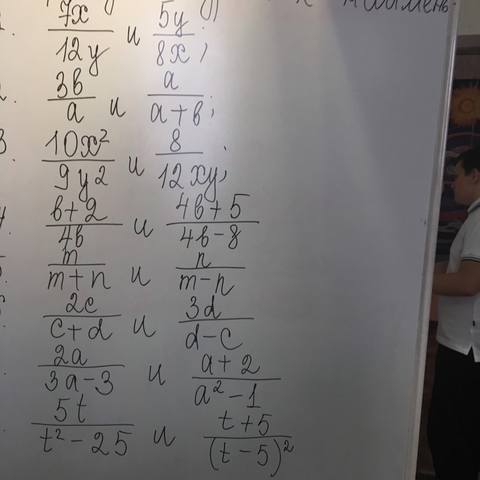 7x/12y и 5y/8x;
2. 3b/a и a/a+b;
3. 10x²/9y² и 8/12xy;
4. b+2/4b и 4b+5/4b-8
5. m/m+n и n/m-n
2c/c+d и 3d/d-c
2a/3a-3 и a+2/a²-1
5t/t²-25 и t+5/(t-5)²